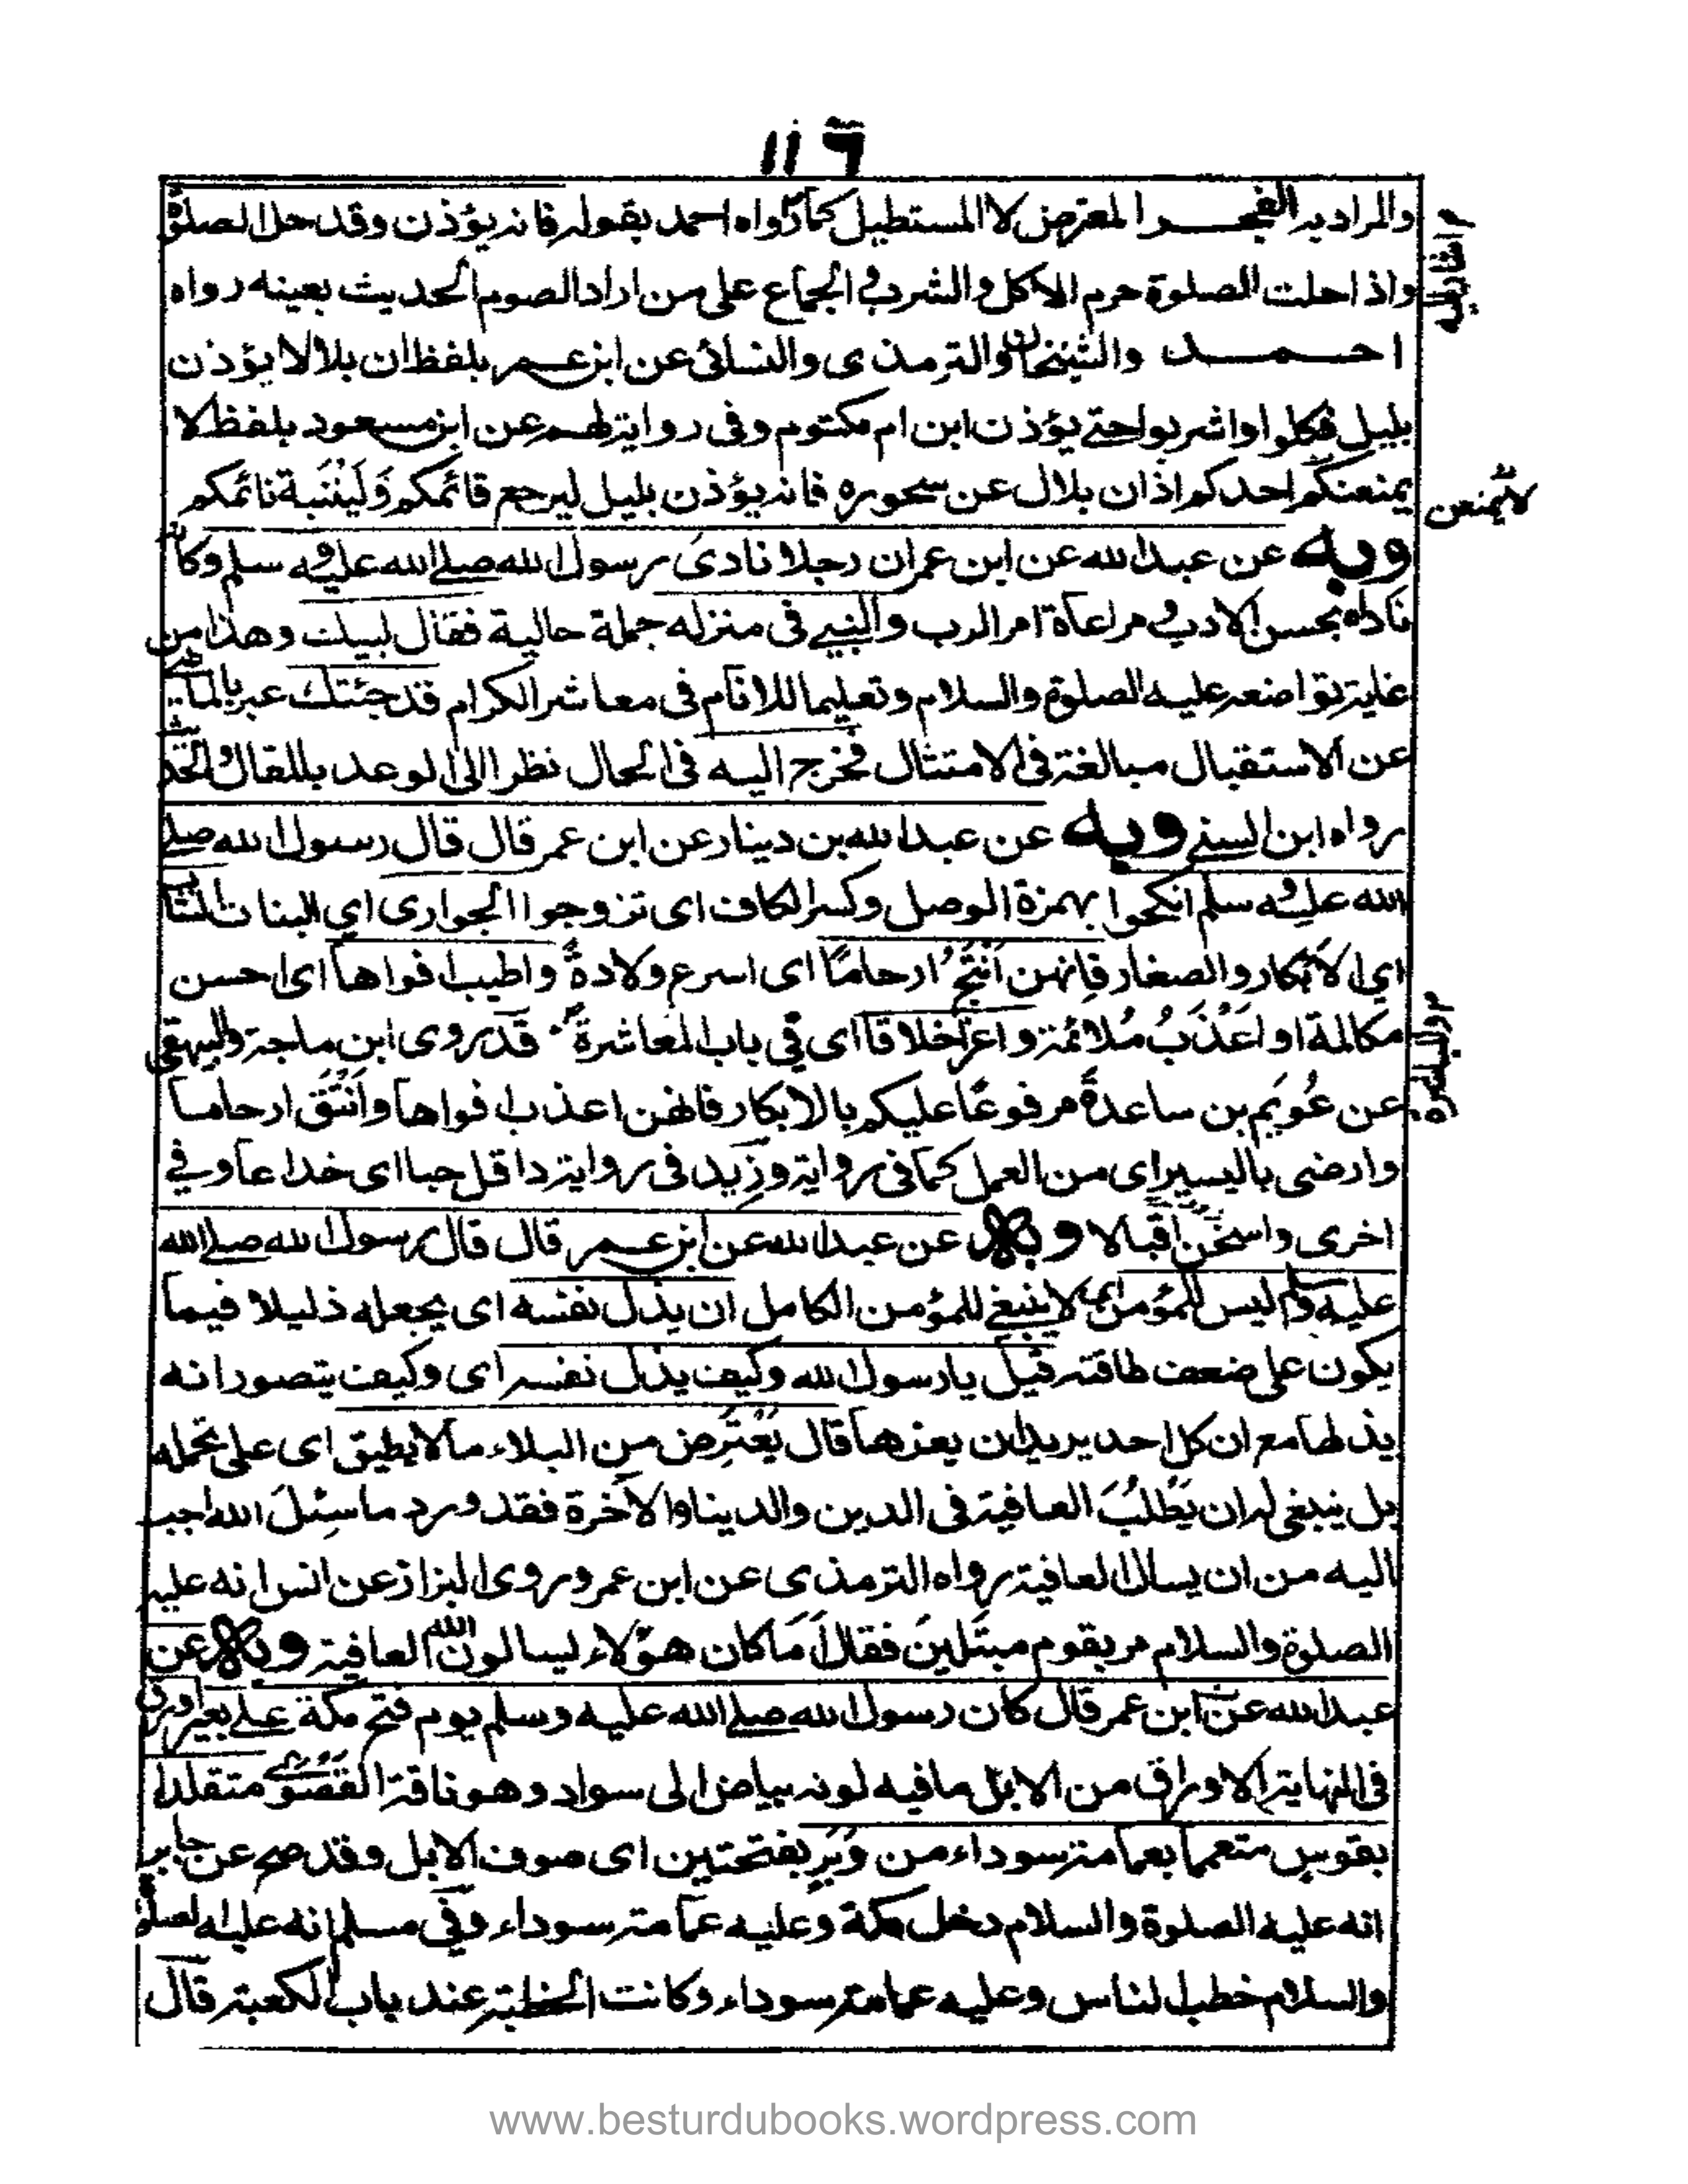 ١١٦
والمراد به الفجر المعترض لا المستطيل كما رواه احمد بقوله فانه يؤذن وقد حل الصلوة
واذا حلت الصلوة حرم الاكل والشرب والجماع على من اراد الصوم الحديث بعينه رواه
احمد والشيخان والترمذى والنسائى عن ابن عمر بلفظ ان بلالا يؤذن
بليل فكلوا واشربوا حتى يؤذن ابن ام مكتوم وفى رواية لهم عن ابن مسعود بلفظ لا
يمنعنكم احدكم اذان بلال عن سحوره فانه يؤذن بليل ليرجع قائمكم وَلَيُنَبِّهَ نائمكم
لا يمنعن
وبه عن عبد الله عن ابن عمر ان رجلا نادى رسول الله صلى الله عليه وسلم وكان
ناداه بحسن الادب ومراعاة امر الرب والنبى فى منزله جملة حالية فقال لبيك وهذا من
غاية تواضعه عليه الصلوة والسلام وتعليما للانام فى معاشر الكرام قد جئتك عبر بالماضى
عن الاستقبال مبالغة فى الامتثال فخرج اليه فى الحال نظرا الى الوعد بالمقال والحديث
رواه ابن السنى وبه عن عبد الله بن دينار عن ابن عمر قال قال رسول الله صلى
الله عليه وسلم انكحوا بهمزة الوصل وكسر الكاف اى تزوجوا الجوارى اى البنات الشابة
اى الابكار والصغار فانهن اَنْتَجُ ارحامًا اى اسرع ولادةً واطيب افواها اى احسن
مكالمة او اَعْذَبُ مُلائمة واعز اخلاقا اى فى باب المعاشرة قد روى ابن ماجة والبيهقى
عن عُوَيْم بن ساعدة مرفوعًا عليكم بالابكار فانهن اعذب افواها وانتق ارحاما
وارضى باليسير اى من العمل كما فى رواية وزيد فى رواية واقل خبا اى خداعا وفي
اخرى واسخن اقبالا وبه عن عبد الله عن ابن عمر قال قال رسول الله صلى الله
عليه وسلم ليس للمؤمن اى لا ينبغى للمؤمن الكامل ان يذل نفسه اى يجعله ذليلا فيما
يكون على ضعف طاقته قيل يا رسول الله وكيف يذل نفسه اى وكيف يتصور انه
يذلها مع ان كل احد يريد ان يعزها قال يَعْتَرِض من البلاء ما لا يطيق اى على تحمله
بل ينبغى له ان يَطْلُبَ العافية فى الدين والدنيا والاخرة فقد ورد ما سئلَ الله احب
اليه من ان يسال العافية رواه الترمذى عن ابن عمر وروى البزاز عن انس انه عليه
الصلوة والسلام مر بقوم مبتَلين فقال اَمَا كان هؤلاء ليسالون الله العافية وبه عن
عبد الله عن ابن عمر قال كان رسول الله صلى الله عليه وسلم يوم فتح مكة على بعير اورق
فى النهاية الاوراق من الابل ما فيه لونه بياض الى سواد وهو ناقة القَصْوٰى متقلدا
بقوس متعمما بعمامة سوداء من وَبَرٍ بفتحتين اى صوف الابل وقد صح عن جابر
انه عليه الصلوة والسلام دخل مكة وعليه عمامة سوداء وفى مسلم انه عليه الصلوة
والسلام خطب لناس وعليه عمامة سوداء وكانت الخطبة عند باب الكعبة قال
www.besturdubooks.wordpress.com